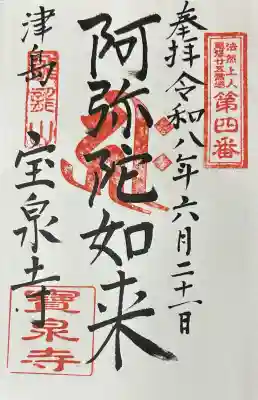 法然上人
圓光大師廿五霊場
第四番
奉拝 令和八年六月二十一日
阿弥陀如来
津島 宝泉寺
寶泉寺